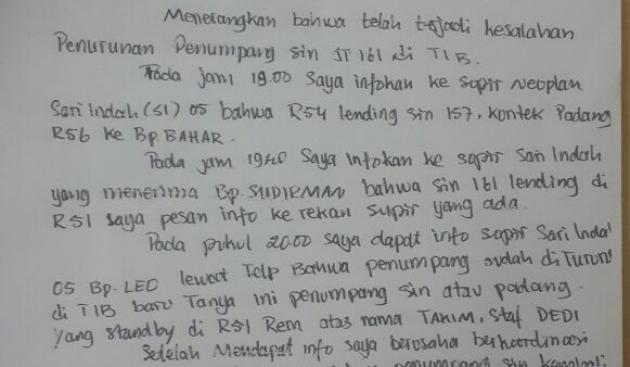 Menerangkan bahwa telah terjadi kesalahan
Penurunan Penumpang sin JT 161 di TIB.
Pada jam 19.00 saya infokan ke sopir Neoplan
Sari Indah (SI) 05 bahwa R54 lending sin 157, kontek Padang
R56 ke Bp. BAHAR.
Pada jam 1940 saya infokan ke sopir Sari Indah
yang menerima Bp. SUDIRMAN bahwa sin 161 lending di
R51 saya pesan info ke rekan supir yang ada.
Pada pukul 20.00 saya dapat info sopir Sari Indah
05 Bp. LEO lewat Telp Bahwa penumpang sudah di Turun
di TIB baru Tanya ini penumpang sin atau padang.
Yang standby di R51 Rem atas nama TAKIM, Staf DEDI
Setelah Mendapat info saya berusaha berkoordinasi
penumpang sin